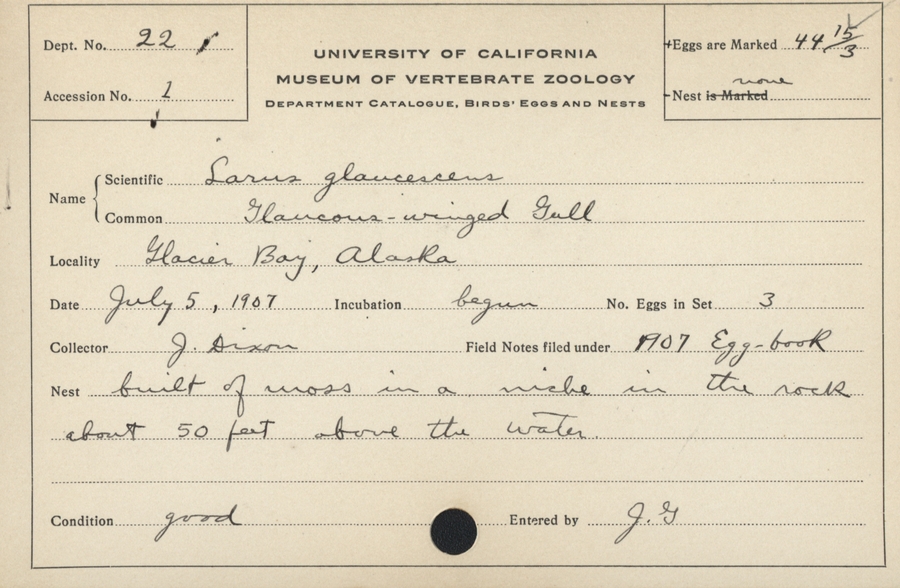 Dept. No. 22
Accession No. 1
UNIVERSITY OF CALIFORNIA
MUSEUM OF VERTEBRATE ZOOLOGY
DEPARTMENT CATALOGUE, BIRDS' EGGS AND NESTS
Eggs are Marked 44 15/3
none
Nest is Marked
Name
Scientific Larus glaucescens
Common Glaucous-winged Gull
Locality Glacier Bay, Alaska
Date July 5, 1907 Incubation begun No. Eggs in Set 3
Collector J. Dixon Field Notes filed under 1907 Egg-book
Nest built of moss in a niche in the rock
about 50 feet above the water.
Condition good Entered by J. G